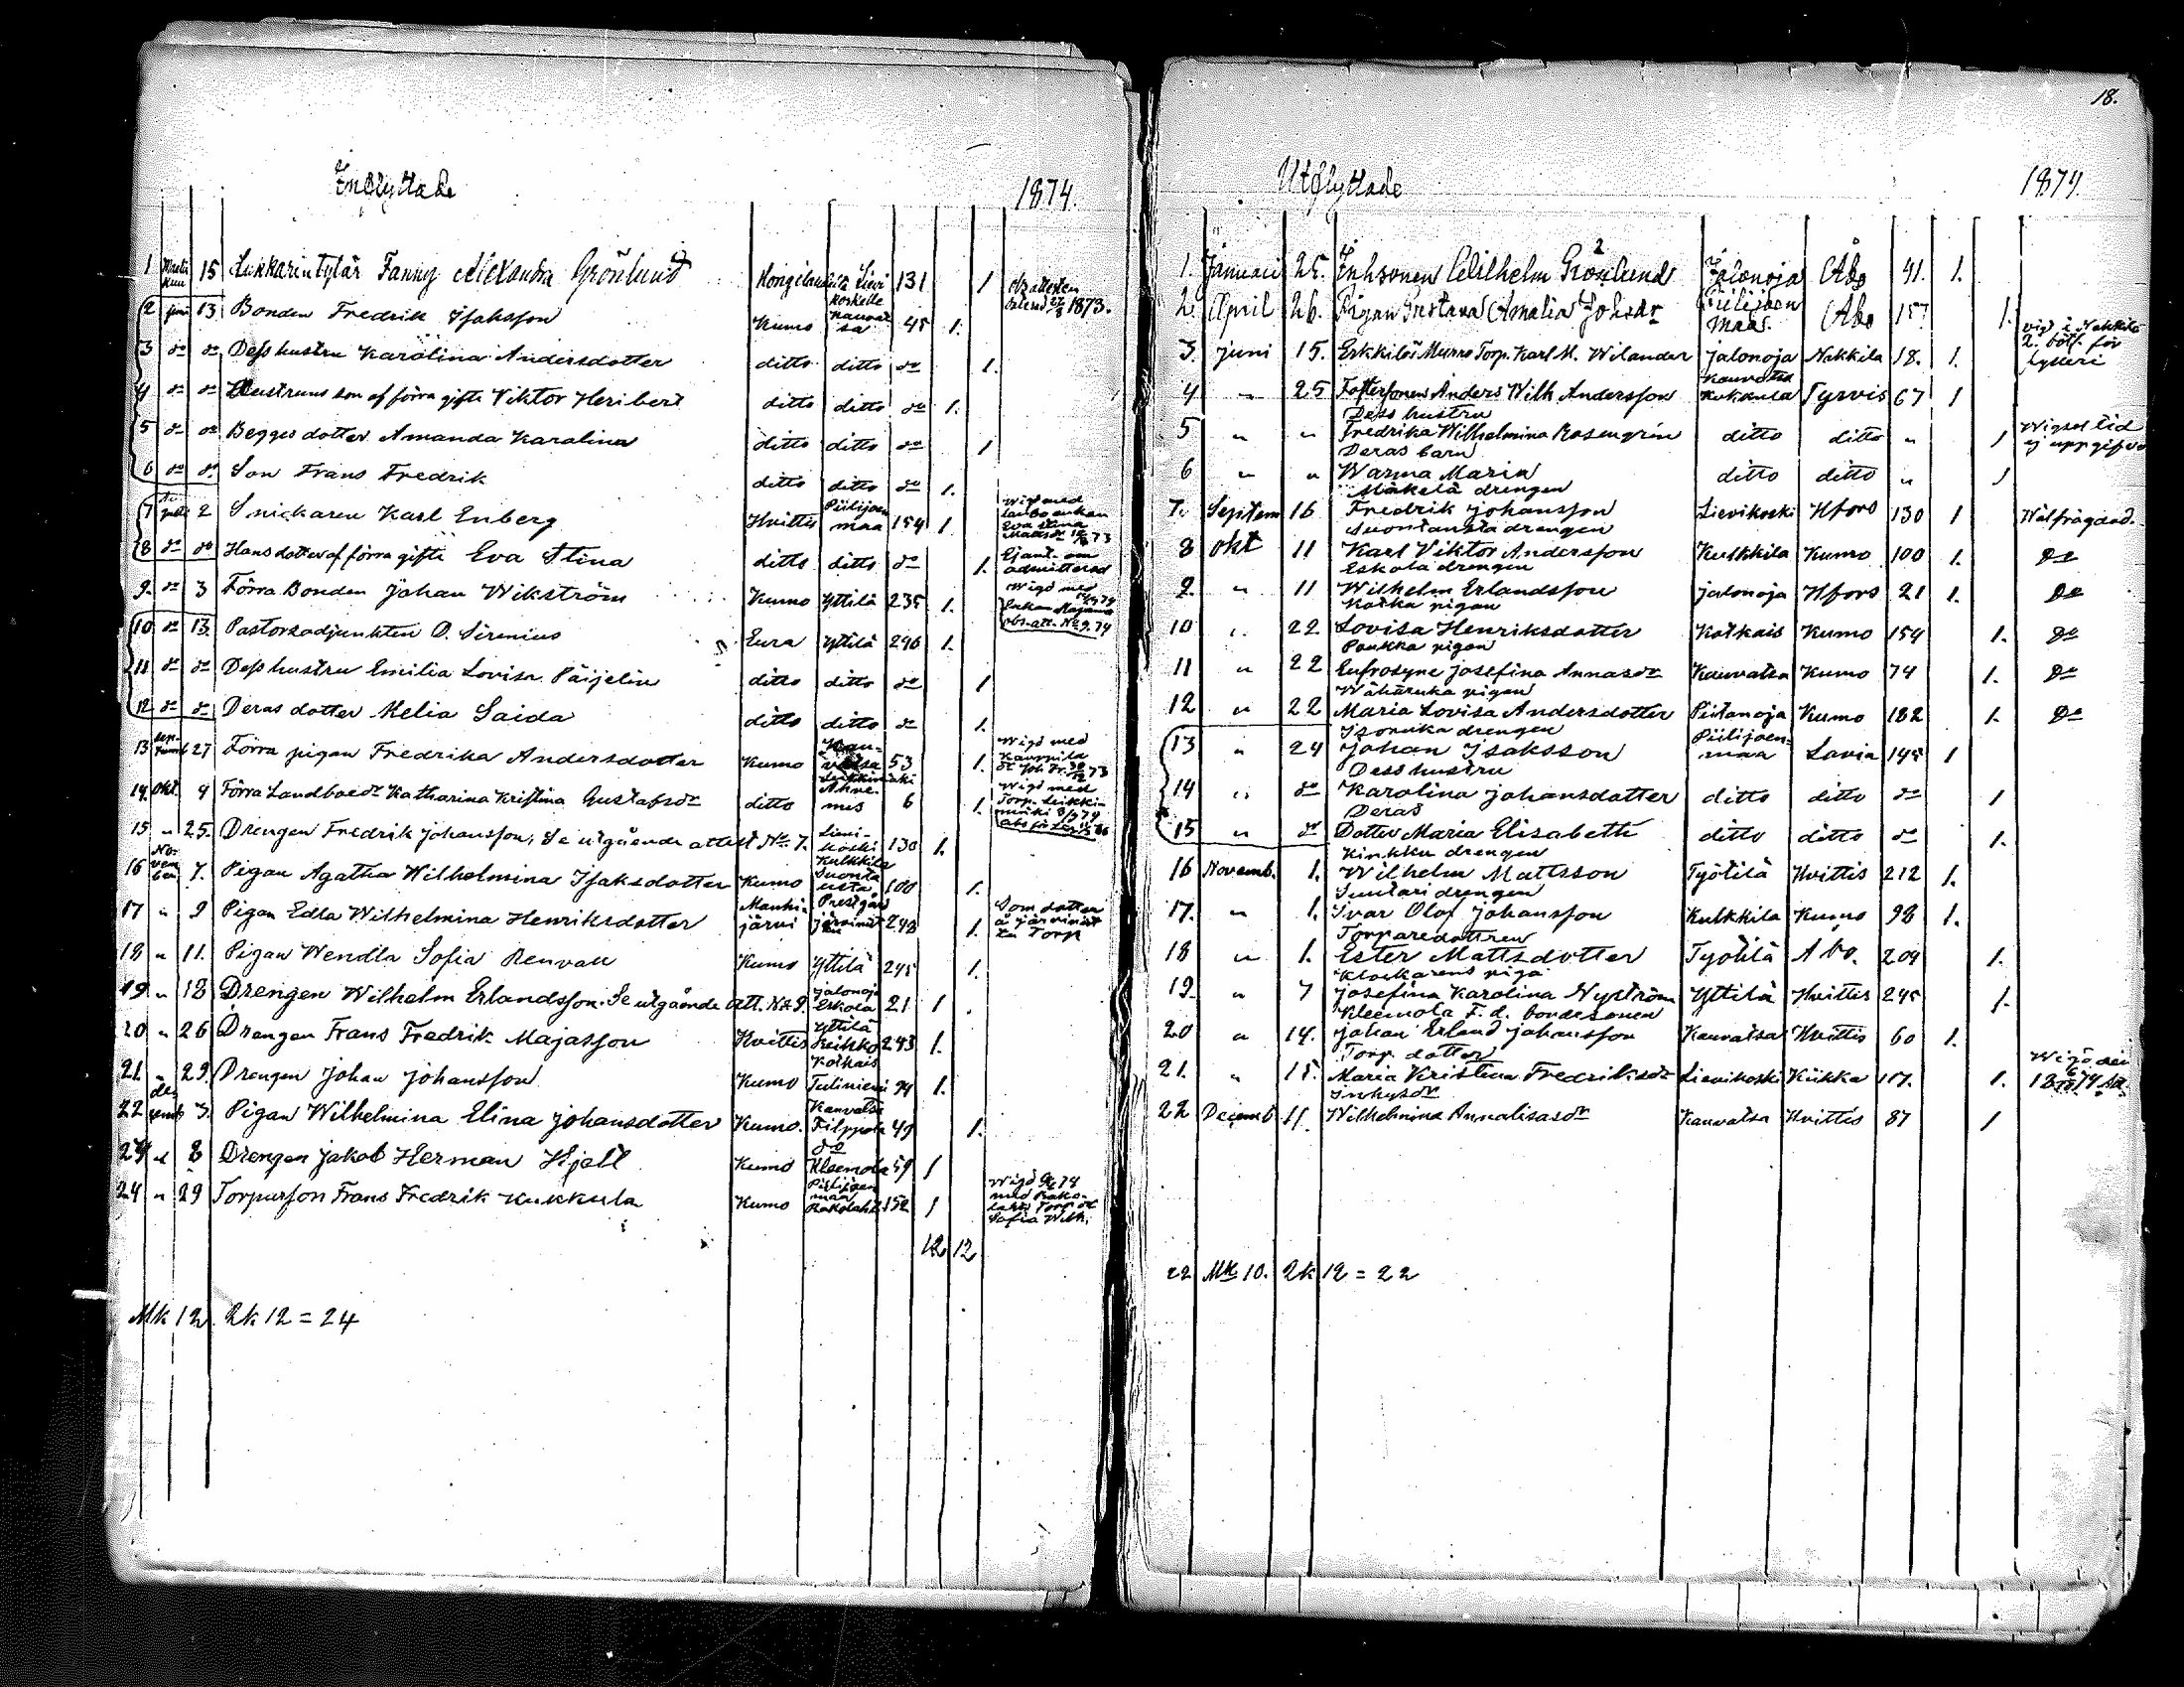 18.
Inflyttade 1874.
1 Maalis kuu 15 Lukkarin tytär Fanny Alexandra Grönlund Hongilax 131 1 1873.
2 juni 13 Bonden Fredrik Isaksson Kumo Kauvatsa 45 1.
3 do do Dess hustru Karolina Andersdotter ditto ditto do 1.
4 do do Hustruns son af förra gifte Viktor Heribert ditto ditto do 1.
5 do do Begges dotter Amanda Karolina ditto ditto do 1
6 do do Son Frans Fredrik ditto ditto do 1.
7 juli 2 Snickaren Karl Enberg Hvittis Piilijoenmaa 154 1 Wigd med Eva Stina
8 do do Hans dotter af förra gifte Eva Stina ditto ditto do 1. Ej ant. om admitterad
9. do 3 Förra Bonden Johan Wikström Kumo Yttilä 235 1. Wigd med Enkan Majanna obs. att. No 9. 74
10 do 13. Pastorsadjunkten O. Sirenius Eura Yttilä 246 1.
11 do do Dess hustru Emilia Lovisa Päijelin ditto ditto do 1
12 do do Deras dotter Melia Saida ditto ditto do 1.
13 septemb 27 Förra pigan Fredrika Andersdotter Kumo Kauvatsa 53 1. Wigd med
14. Okt. 4 Förra Landboedr Katharina Kristina Gustafsdr ditto 6 1. Wigd med Torp.
15 " 25. Drengen Fredrik Johansson, Se utgående attest No 7. Lievikoski 130 1.
16 November 7. Pigan Agatha Wilhelmina Isaksdotter Kumo Kulkkila Suontausta 100 1.
17 " 9 Pigan Edla Wilhelmina Henriksdotter Mouhijärvi 1. Som dotter Torp
18 " 11. Pigan Wendla Sofia Renvall Kumo Yttilä 245 1.
19 " 18 Drengen Wilhelm Erlandsson. Se utgående att. No 9. Jalonoja Eskola 21 1
20 " 26 Drengen Frans Fredrik Majasson Hvittis Yttilä Heikko 243 1.
21. " 29. Drengen Johan Johansson Kumo Kotkais Tuliniemi 94 1.
22 dezemb 3. Pigan Wilhelmina Elina Johansdotter Kumo. Kauvatsa Filppola 49 1.
24 " 8 Drengen Jakob Herman Hjell Kumo do Kleemola 59 1
24 " 29 Torparson Frans Fredrik Kukkula Kumo Piilijoenmaa Rakolaht 152 1 Wigd med Torp. dr Sofia Wilh.
12 12
Mk 12. Qk 12 = 24
Utflyttade 1874.
1. Januari 25. Inhsonen Wilhelm Grönlund Jalonoja Åbo 41. 1.
2. April 26. Pigan Gustava Amalia Johsdr Piilijoen maas. Åbo 157 1.
3. juni 15. Erkkilös Murro Torp. Karl M. Wilander Jalonoja Nakkila 18. 1. vigd i Nakkila 2. böt. för
4 " 25 Fostersonen Anders Wilh Andersson Kauvatsa Kukkula Tyrvis 67 1
Dess hustru
5 " " Fredrika Wilhelmina Rosengrén ditto ditto " 1 Wigsel tid ej uppgifven
Deras barn
6 " " Warma Maria ditto ditto " 1
Mäkelä drengen
7. Septem 16 Fredrik Johansson Lievikoski Hfors 130 1 Wälfrägdad.
Suontausta drengen
8 Okt 11 Karl Viktor Andersson Kulkkila Kumo 100 1. Do
Eskola drengen
9. " 11 Wilhelm Erlandsson Jalonoja Hfors 21 1. Do
Kotka pigan
10 " 22. Lovisa Henriksdotter Kotkais Kumo 154 1. Do
Paukka pigan
11 " 22 Eufrosyne Josefina Annasdr Kauvatsa Kumo 74 1. Do
Wähäruka pigan
12 " 22 Maria Lovisa Andersdotter Piitanoja Kumo 182 1. Do
Isoruka drengen
13 " 24 Johan Isaksson Piilijoenmaa Lavia 145 1
Dess hustru
14 " do Karolina Johansdotter ditto ditto do 1
Deras
15 " do Dotter Maria Elisabeth ditto ditto do 1.
Kinkku drengen
16 Novemb. 1. Wilhelm Mattsson Työtilä Hvittis 212 1.
Suutari drengen
17. " 1. Ivar Olof Johansson Kulkkila Kumo 98 1.
Torparedottren
18 " 1. Ester Mattsdotter Työtilä Abo. 209 1.
Klockarens piga
19. " 7 Josefina Karolina Nyström Yttilä Hvittis 245 1.
Kleemola F. d. bondesonen
20 " 14. Johan Erland Johansson Kauvatsa Hvittis 60 1.
Torp. dotter
21. " 15. Maria Kristina Fredriksdr Lievikoski Kiikka 117. 1. Wigd den
Inhysdr
22 Decemb 11. Wilhelmina Annalisasdr Kauvatsa Hvittis 87 1
22 Mk 10. Qk 12 = 22